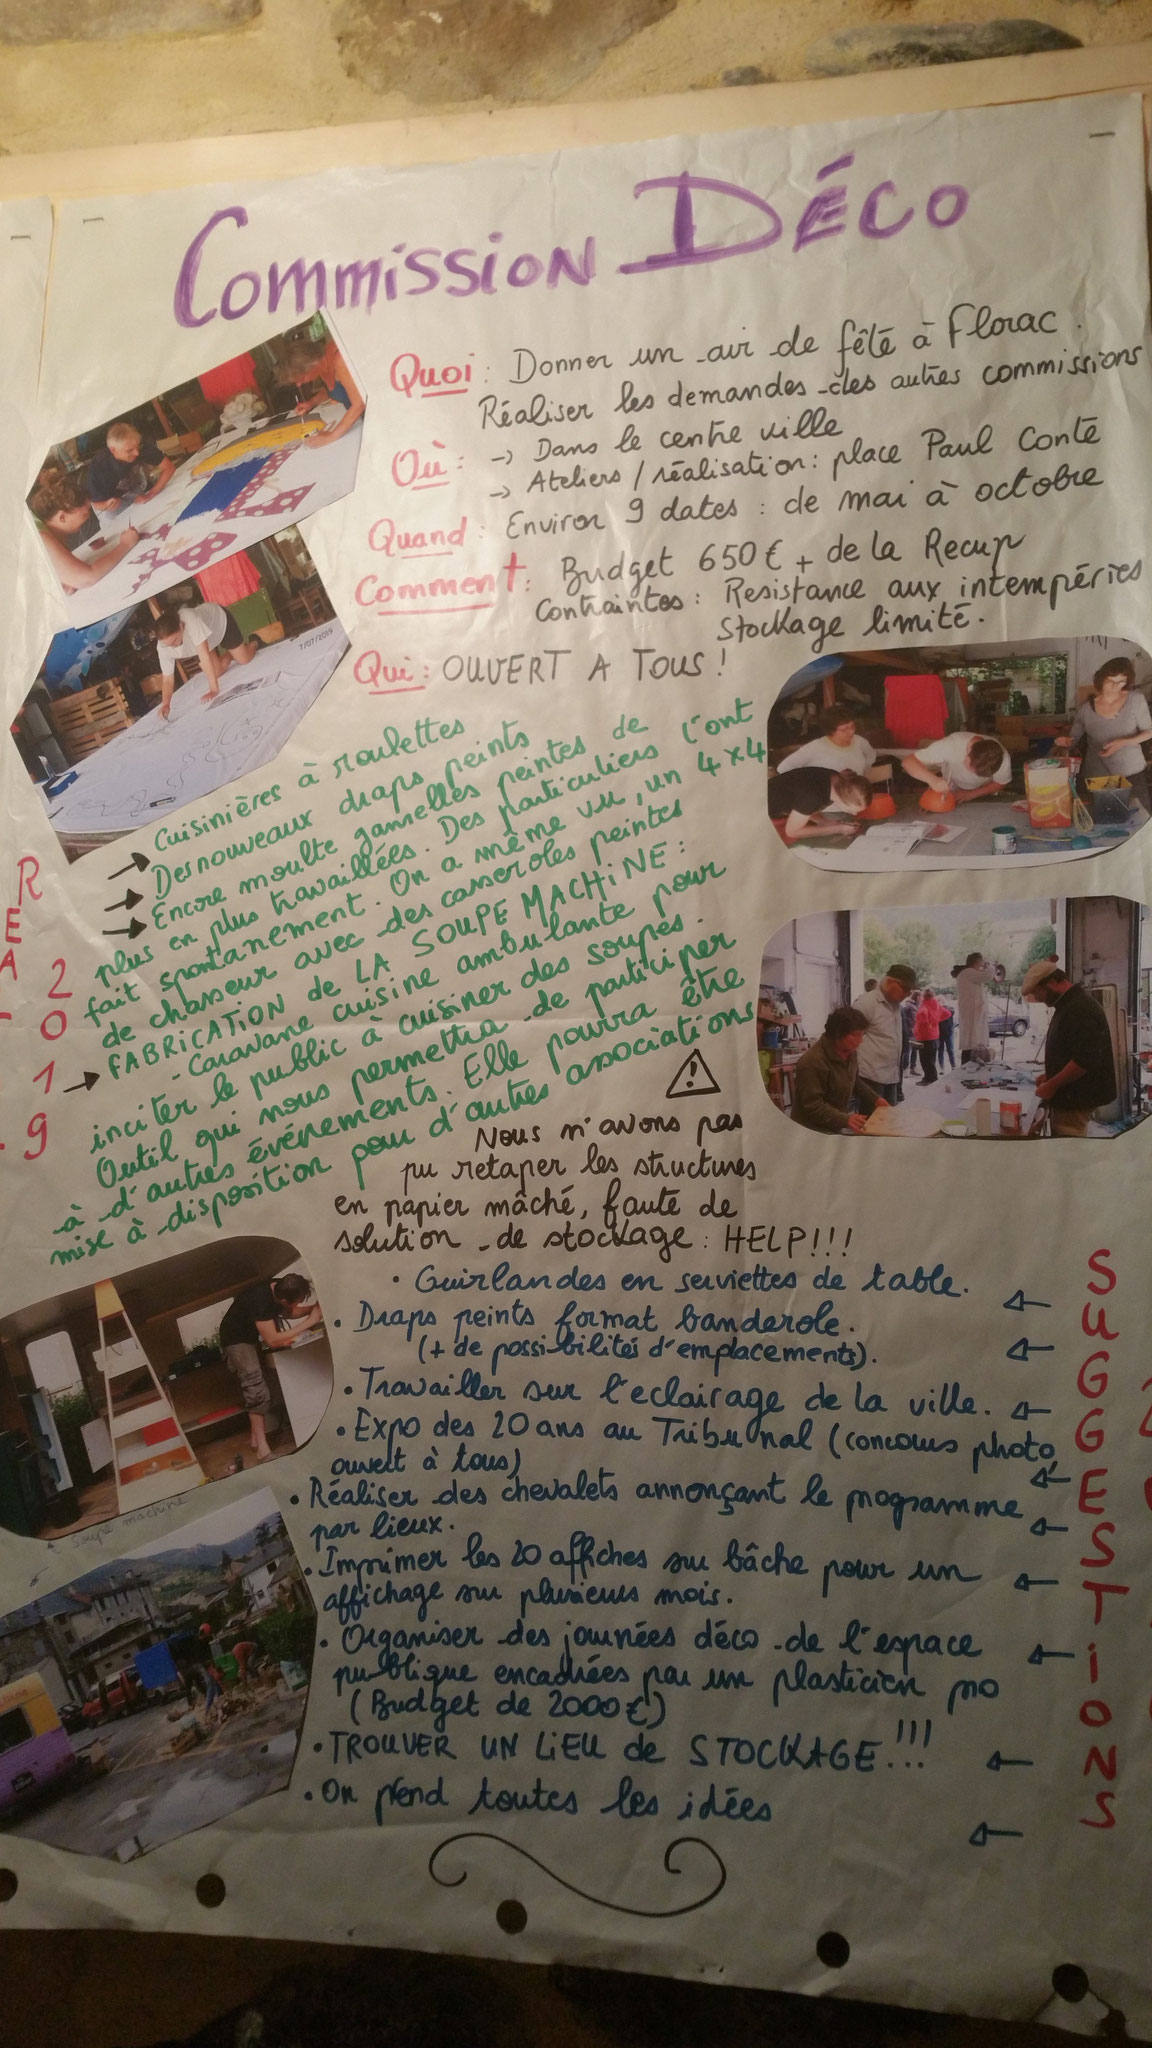 Commission DÉCO
Quoi : Donner un air de fête à Florac.
Réaliser les demandes des autres commissions
Où : → Dans le centre ville
→ Ateliers / réalisation : place Paul Conte
Quand : Environ 9 dates : de mai à octobre
Comment : Budget 650€ + de la Recup
Contraintes : Resistance aux intempéries
Stockage limité.
Qui : OUVERT A TOUS !
7/07/2019
→ Cuisinières à roulettes
→ Des nouveaux draps peints
→ Encore moulte gamelles peintes de
plus en plus travaillées. Des particuliers l'ont
fait spontanement. On a même vu, un 4x4
de chasseur avec des casseroles peintes
→ FABRICATION de LA SOUPE MACHINE :
- Caravane cuisine ambulante pour
inciter le public à cuisiner des soupes.
Outil qui nous permettra de participer
à d'autres événements. Elle pourra être
mise à disposition pour d'autres associations
R
E
A
2
0
1
9
!
Nous n'avons pas
pu retaper les structures
en papier mâché, faute de
solution de stockage : HELP!!!
• Guirlandes en serviettes de table.
• Draps peints format banderole.
(+ de possibilités d'emplacements).
• Travailler sur l'eclairage de la ville.
• Expo des 20 ans au Tribunal (concours photo,
ouvert à tous)
• Réaliser des chevalets annonçant le programme
par lieux.
• Imprimer les 20 affiches su bâche pour un
affichage sur plusieurs mois.
• Organiser des journées déco de l'espace
publique encadrées par un plasticien pro
(Budget de 2000€)
• TROUVER UN LIEU de STOCKAGE !!!
• On prend toutes les idées
SUGGESTIONS
Soupe machine